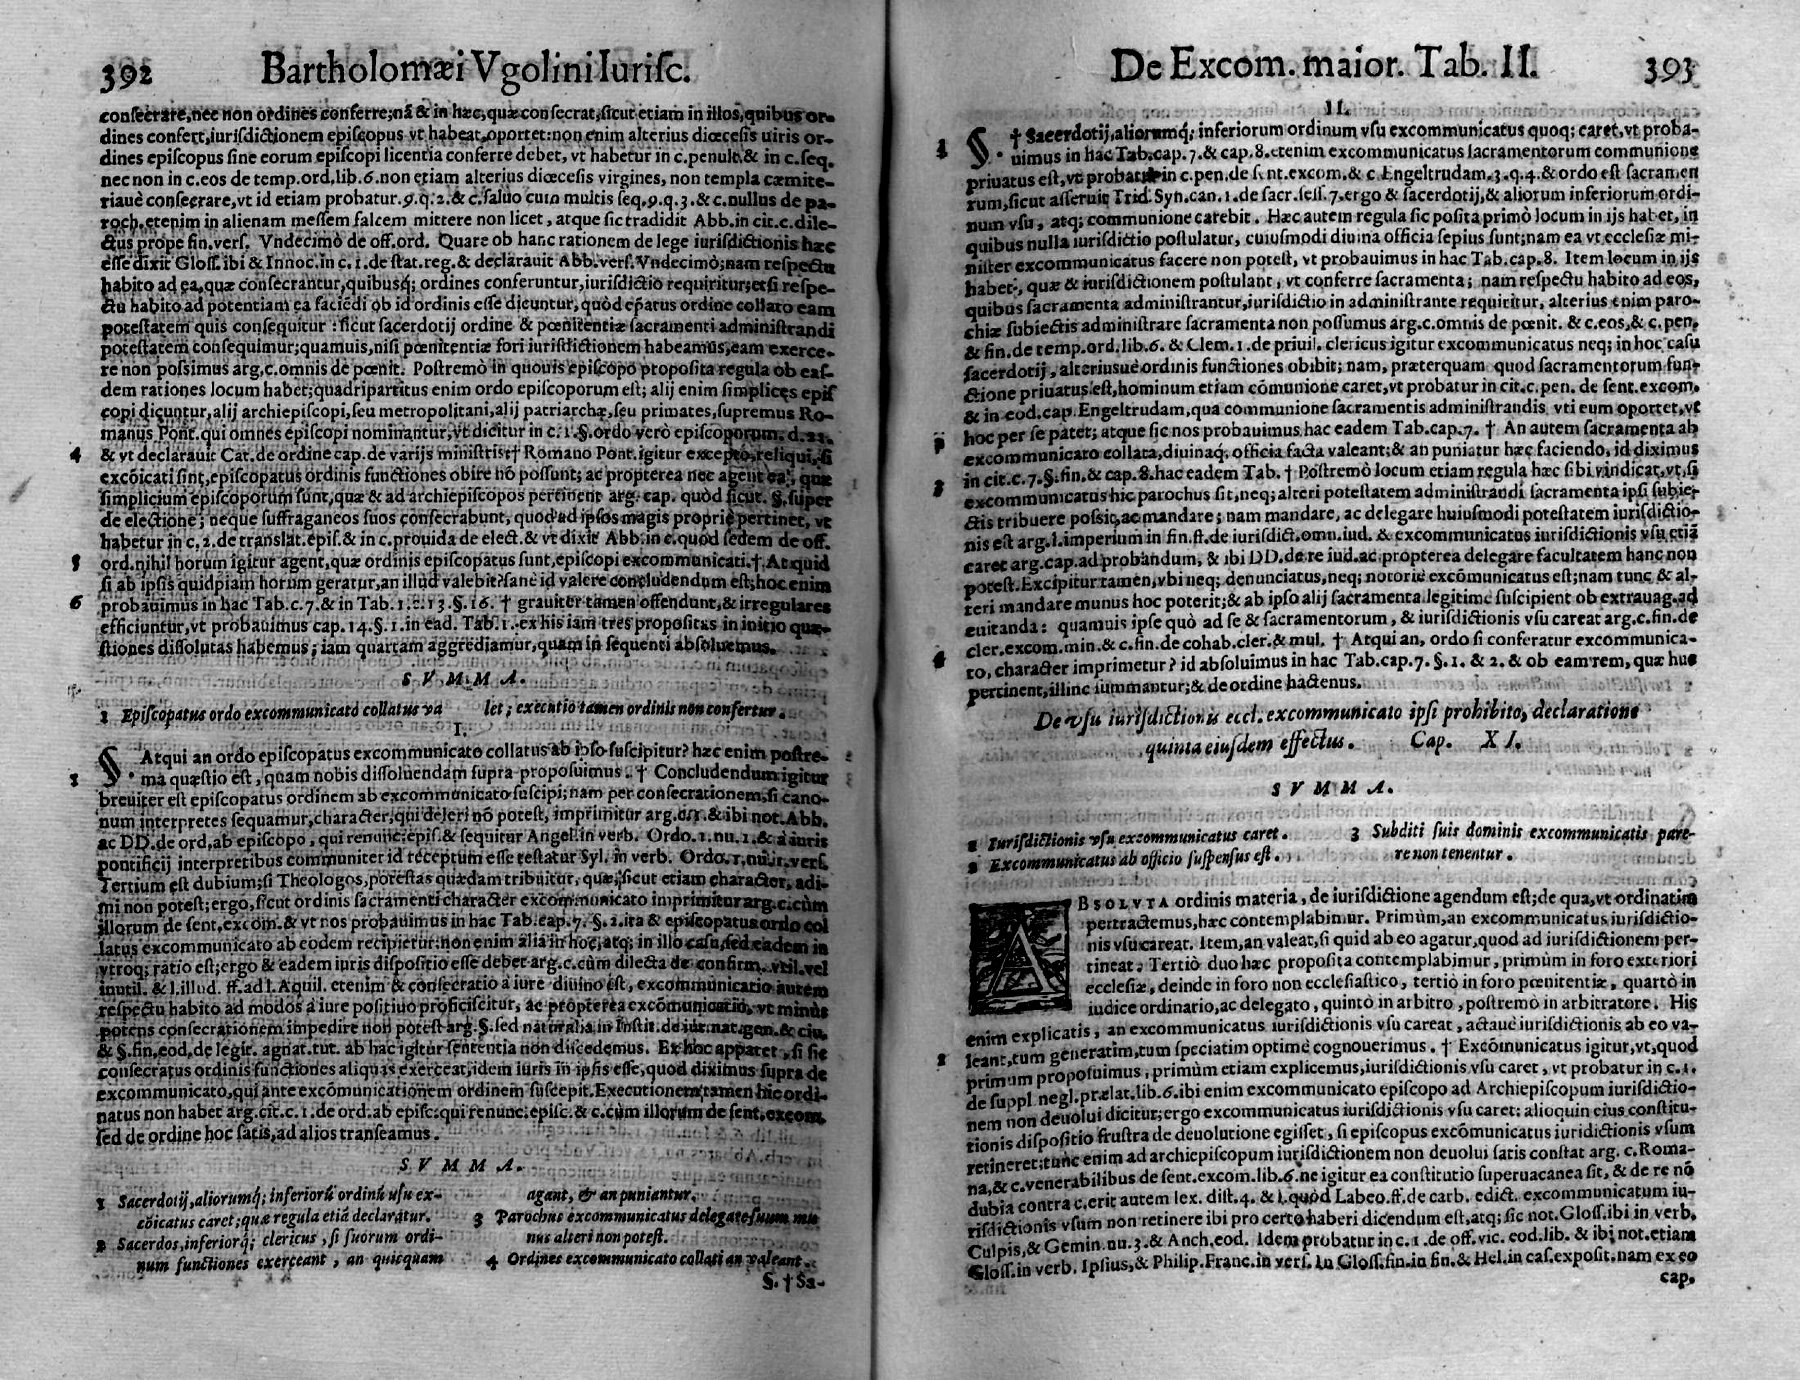 392 Bartholomæi Vgolini Iurisc.
consecrare, nec non ordines conferre; nā & in hæc, quæ consecrat, sicut etiam in illos, quibus or-
dines confert, iurisdictionem episcopus vt habeat, oportet: non enim alterius diœcesis uiris or-
dines episcopus sine eorum episcopi licentia conferre debet, vt habetur in c. penult. & in c. seq.
nec non in c. eos de temp. ord. lib. 6. non etiam alterius diœcesis virgines, non templa cæmite-
riaue consecrare, vt id etiam probatur. 9. q. 2. & c. saluo cum multis seq. 9. q. 3. & c. nullus de pa-
roch. etenim in alienam messem falcem mittere non licet, atque sic tradidit Abb. in cit. c. dile-
ctus prope fin. vers. Vndecimò de off. ord. Quare ob hanc rationem de lege iurisdictionis hæc
esse dixit Gloss. ibi & Innoc. in c. 1. de stat. reg. & declarauit Abb. vers. Vndecimò; nam respectu
habito ad ea, quæ consecrantur, quibusq́; ordines conferuntur, iurisdictio requiritur; etsi respe-
ctu habito ad potentiam ea faciēdi ob id ordinis esse dicuntur, quòd ep̄atus ordine collato eam
potestatem quis consequitur: sicut sacerdotij ordine & pœnitentiæ sacramenti administrandi
potestatem consequimur; quamuis, nisi pœnitentiæ fori iurisdictionem habeamus, eam exerce-
re non possimus arg. c. omnis de pœnit. Postremò in quouis episcopo proposita regula ob eas-
dem rationes locum habet; quadripartitus enim ordo episcoporum est; alij enim simplices epis
copi dicuntur, alij archiepiscopi, seu metropolitani, alij patriarchæ, seu primates, supremus Ro-
manus Pont. qui omnes episcopi nominantur, vt dicitur in c. 1. §. ordo verò episcoporum. d. 21.
4 & vt declarauit Cat. de ordine cap. de varijs ministris: † Romano Pont. igitur excepto, reliqui, si
excōicati sint, episcopatus ordinis functiones obire nō possunt; ac propterea nec agent ea, quæ
simplicium episcoporum sunt, quæ & ad archiepiscopos pertinent arg. cap. quòd sicut. §. super
de electione; neque suffraganeos suos consecrabunt, quod ad ipsos magis propriè pertinet, vt
habetur in c. 2. de translat. epis. & in c. prouida de elect. & vt dixit Abb. in c. quòd sedem de off.
5 ord. nihil horum igitur agent, quæ ordinis episcopatus sunt, episcopi excommunicati. † At quid
si ab ipsis quidpiam horum geratur, an illud valebit? sanè id valere concludendum est; hoc enim
6 probauimus in hac Tab. c. 7. & in Tab. 1. c. 13. §. 16. † grauiter tamen offendunt, & irregulares
efficiuntur, vt probauimus cap. 14. §. 1. in ead. Tab. 1. ex his iam tres propositas in initio quæ-
stiones dissolutas habemus; iam quartam aggrediamur, quam in sequenti absoluemus.
SVMMA.
1 Episcopatus ordo excommunicato collatus va let; executio tamen ordinis non confertur.
I.
§. Atqui an ordo episcopatus excommunicato collatus ab ipso suscipitur? hæc enim postre-
1 ma quæstio est, quam nobis dissoluendam supra proposuimus. † Concludendum igitur
breuiter est episcopatus ordinem ab excommunicato suscipi; nam per consecrationem, si cano-
num interpretes sequamur, character, qui deleri nō potest, imprimitur arg. c. 1. & ibi not. Abb.
ac DD. de ord. ab episcopo, qui renunc. epis. & sequitur Angel. in verb. Ordo. 1. nu. 1. & à iuris
pontificij interpretibus communiter id receptum esse testatur Syl. in verb. Ordo. 1. nu. 1. vers.
Tertium est dubium; si Theologos, potestas quædam tribuitur, quæ, sicut etiam character, adi-
mi non potest; ergo, sicut ordinis sacramenti character excommunicato imprimitur arg. c. cùm
illorum de sent. excom. & vt nos probauimus in hac Tab. cap. 7. §. 2. ita & episcopatus ordo col
latus excommunicato ab eodem recipietur: non enim alia in hoc, atq; in illo casu, sed eadem in
vtroq; ratio est; ergo & eadem iuris dispositio esse debet arg. c. cùm dilecta de confirm. vtil. vel
inutil. & l. illud. ff. ad l. Aquil. etenim & consecratio à iure diuino est, excommunicatio autem
respectu habito ad modos à iure positiuo proficiscitur, ac propterea excōmunicatio, vt minùs
potens consecrationem impedire non potest arg. §. sed naturalia in Instit. de iur. nat. gen. & ciu.
& §. fin. eod. de legit. agnat. tut. ab hac igitur sententia non discedemus. Ex hoc apparet, si sic
consecratus ordinis functiones aliquas exerceat, idem iuris in ipsis esse, quod diximus supra de
excommunicato, qui ante excōmunicationem ordinem suscepit. Executionem tamen hic ordi-
natus non habet arg. cit. c. 1. de ord. ab episc. qui renunc. episc. & c. cùm illorum de sent. excom.
sed de ordine hoc satis, ad alios transeamus.
SVMMA.
1 Sacerdotij, aliorumq́; inferiorū ordinū usu ex-
cōicatus caret; quæ regula etiā declaratur.
2 Sacerdos, inferiorq́; clericus, si suorum ordi-
num functiones exerceant, an quicquam
agant, & an puniantur.
3 Parochus excommunicatus delegare suum mu
nus alteri non potest.
4 Ordines excommunicato collati an valeant.
§. † Sa-
De Excom. maior. Tab. II. 393
II.
1 §. † Sacerdotij, aliorumq́; inferiorum ordinum vsu excommunicatus quoq; caret, vt proba-
uimus in hac Tab. cap. 7. & cap. 8. etenim excommunicatus sacramentorum communione
priuatus est, vt probatur in c. pen. de sent. excom. & c. Engeltrudam. 3. q. 4. & ordo est sacramen
tum, sicut asseruit Trid. Syn. can. 1. de sacr. sess. 7. ergo & sacerdotij, & aliorum inferiorum ordi-
num vsu, atq; communione carebit. Hæc autem regula sic posita primò locum in ijs habet, in
quibus nulla iurisdictio postulatur, cuiusmodi diuina officia sepius sunt; nam ea vt ecclesiæ mi-
nister excommunicatus facere non potest, vt probauimus in hac Tab. cap. 8. Item locum in ijs
habet, quæ & iurisdictionem postulant, vt conferre sacramenta; nam respectu habito ad eos,
quibus sacramenta administrantur, iurisdictio in administrante requiritur, alterius enim paro-
chiæ subiectis administrare sacramenta non possumus arg. c. omnis de pœnit. & c. eos, & c. pen.
& fin. de temp. ord. lib. 6. & Clem. 1. de priuil. clericus igitur excommunicatus neq; in hoc casu
sacerdotij, alteriusue ordinis functiones obibit; nam, præterquam quod sacramentorum fun-
ctione priuatus est, hominum etiam cōmunione caret, vt probatur in cit. c. pen. de sent. excom.
& in eod. cap. Engeltrudam, qua communione sacramentis administrandis vti eum oportet, vt
2 hoc per se patet; atque sic nos probauimus hac eadem Tab. cap. 7. † An autem sacramenta ab
excommunicato collata, diuinaq́; officia facta valeant; & an puniatur hæc faciendo, id diximus
3 in cit. c. 7. §. fin. & cap. 8. hac eadem Tab. † Postremò locum etiam regula hæc sibi vindicat, vt, si
excommunicatus hic parochus sit, neq; alteri potestatem administrandi sacramenta ipsi subie-
ctis tribuere possit, ac mandare; nam mandare, ac delegare huiusmodi potestatem iurisdictio-
nis est arg. l. imperium in fin. ff. de iurisdict. omn. iud. & excommunicatus iurisdictionis vsu etiā
caret arg. cap. ad probandum, & ibi DD. de re iud. ac propterea delegare facultatem hanc non
potest. Excipitur tamen, vbi neq; denunciatus, neq; notoriè excōmunicatus est; nam tunc & al-
teri mandare munus hoc poterit; & ab ipso alij sacramenta legitimè suscipient ob extrauag. ad
euitanda: quamuis ipse quò ad se & sacramentorum, & iurisdictionis vsu careat arg. c. fin. de
4 cler. excom. min. & c. fin. de cohab. cler. & mul. † Atqui an, ordo si conferatur excommunica-
to, character imprimetur? id absoluimus in hac Tab. cap. 7. §. 1. & 2. & ob eam rem, quæ huc
pertinent, illinc summantur; & de ordine hactenus.
De vsu iurisdictionis eccl. excommunicato ipsi prohibito, declaratione
quinta eiusdem effectus. Cap. XI.
SVMMA.
1 Iurisdictionis vsu excommunicatus caret.
2 Excommunicatus ab officio suspensus est.
3 Subditi suis dominis excommunicatis pare-
re non tenentur.
ABSOLVTA ordinis materia, de iurisdictione agendum est; de qua, vt ordinatim
pertractemus, hæc contemplabimur. Primùm, an excommunicatus iurisdictio-
nis vsu careat. Item, an valeat, si quid ab eo agatur, quod ad iurisdictionem per-
tineat. Tertiò duo hæc proposita contemplabimur, primùm in foro exteriori
ecclesiæ, deinde in foro non ecclesiastico, tertiò in foro pœnitentiæ, quartò in
iudice ordinario, ac delegato, quintò in arbitro, postremò in arbitratore. His
enim explicatis, an excommunicatus iurisdictionis vsu careat, actaue iurisdictionis ab eo va-
1 leant, tum generatim, tum speciatim optimè cognouerimus. † Excōmunicatus igitur, vt, quod
primum proposuimus, primùm etiam explicemus, iurisdictionis vsu caret, vt probatur in c. 1.
de suppl. negl. prælat. lib. 6. ibi enim excommunicato episcopo ad Archiepiscopum iurisdictio-
nem non deuolui dicitur; ergo excommunicatus iurisdictionis vsu caret: alioquin eius constitu-
tionis dispositio frustra de deuolutione egisset, si episcopus excōmunicatus iuridictionis vsum
retineret: tunc enim ad archiepiscopum iurisdictionem non deuolui satis constat arg. c. Roma-
na, & c. venerabilibus de sent. excom. lib. 6. ne igitur ea constitutio superuacanea sit, & de re nō
dubia contra c. erit autem lex. dist. 4. & l. quòd Labeo. ff. de carb. edict. excommunicatum iu-
risdictionis vsum non retinere ibi pro certo haberi dicendum est, atq; sic not. Gloss. ibi in verb.
Culpis, & Gemin. nu. 3. & Anch. eod. Idem probatur in c. 1. de off. vic. eod. lib. & ibi not. etiam
Gloss. in verb. Ipsius, & Philip. Franc. in vers. In Gloss. fin. in fin. & Hel. in cas. exposit. nam ex eo
cap.